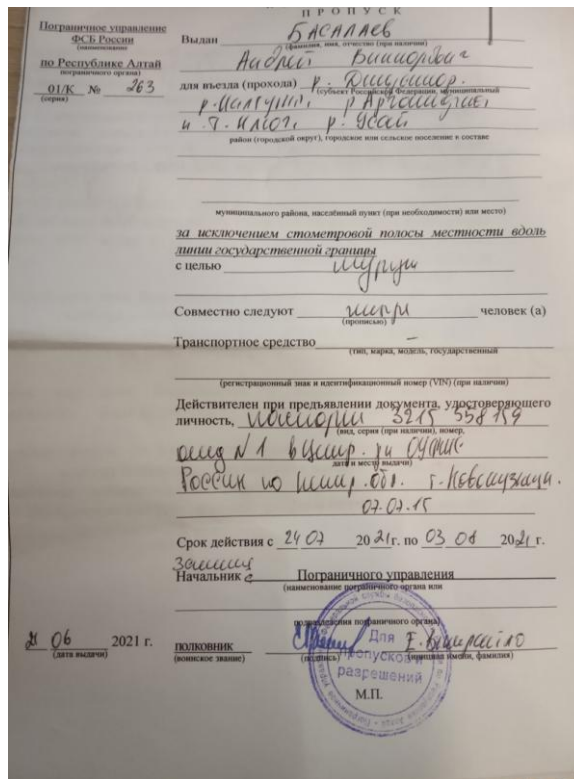 ПРОПУСК
Пограничное управление
ФСБ России
(наименование
по Республике Алтай
пограничного органа)
01/К № 263
(серия)
Выдан БАСАЛАЕВ
(фамилия, имя, отчество (при наличии)
Андрей Викторович
для въезда (прохода) р.
(субъект Российской Федерации, муниципальный
р.
район (городской округ), городское или сельское поселение в составе
муниципального района, населённый пункт (при необходимости) или место)
за исключением стометровой полосы местности вдоль
линии государственной границы
с целью туризм
Совместно следуют человек (а)
(прописью)
Транспортное средство –
(тип, марка, модель, государственный
(регистрационный знак и идентификационный номер (VIN) (при наличии)
Действителен при предъявлении документа, удостоверяющего
личность, паспорт 3215 558159
(вид, серия (при наличии), номер,
отд N 1 в р-не ОУФМС
дата и место выдачи)
России по обл. г. Новокузнецк.
07.07.15
Срок действия с 24 07 2021г. по 03 08 2021 г.
Начальник Пограничного управления
(наименование пограничного органа или
подразделения пограничного органа)
06 2021 г.
(дата выдачи)
полковник
(воинское звание)
(подпись)
(инициал имени, фамилия)
Для
пропусков и
разрешений
М.П.